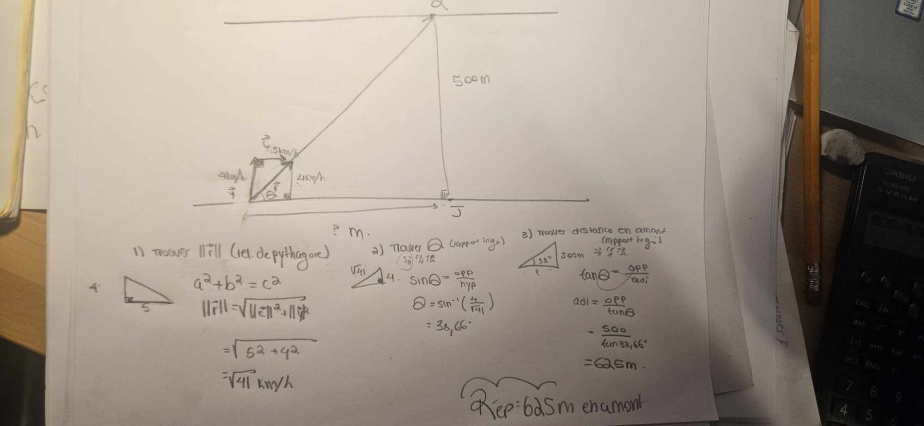 Q
500m
c, 5km/h
4km/h
4km/h
f
r
θ
J
? m.
1) Trouver ||r|| (rel. de pythagore)
4
5
a²+b²=c²
||r||=√||c||²+||f||²
=√5²+4²
=√41 km/h
2) Trouver θ (rapport trig.)
√41
4
sinθ=opp
hyp
θ=sin⁻¹(4
√41)
=38,66°
3) Trouver distance en amont
(rapport trig.)
500m
38°
?
tanθ=opp
adj
adj=opp
tanθ
=500
tan38,66°
=625m.
Rép: 625m en amont
CASIO
7
8
4
5